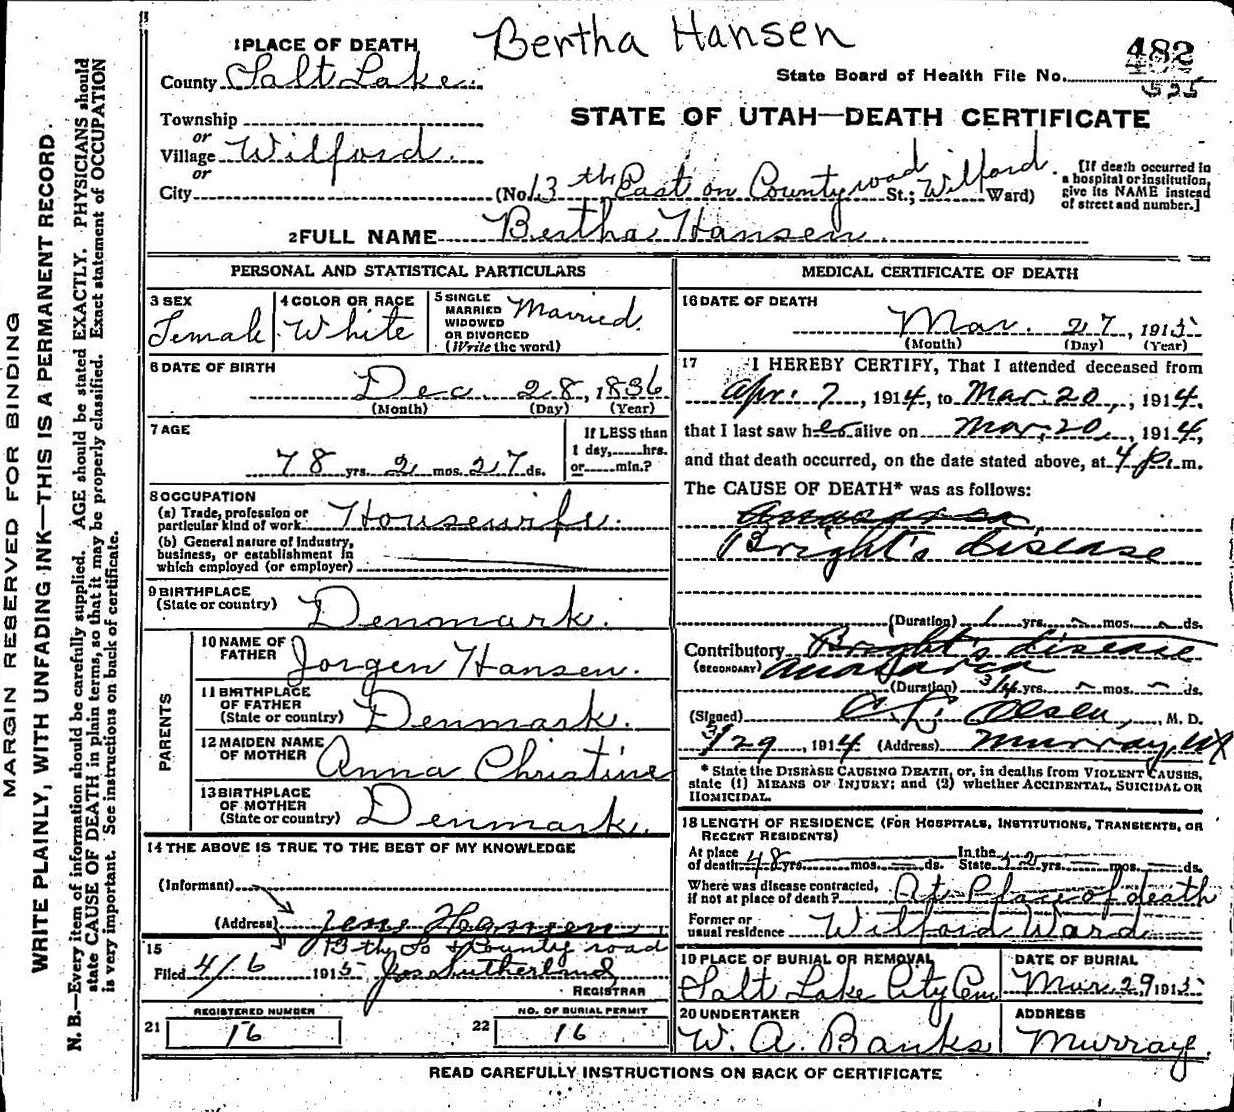 Bertha Hansen
1 PLACE OF DEATH
County Salt Lake
482
State Board of Health File No.
STATE OF UTAH—DEATH CERTIFICATE
Township
or
Village Wilford
or
City (No. 13th East on County road St.; Wilford Ward)
[If death occurred in
a hospital or institution,
give its NAME instead
of street and number.]
2 FULL NAME Bertha Hansen
PERSONAL AND STATISTICAL PARTICULARS
3 SEX
Female
4 COLOR OR RACE
White
5 SINGLE
MARRIED
WIDOWED
OR DIVORCED
(Write the word)
Married
6 DATE OF BIRTH
Dec. 28, 1836
(Month) (Day) (Year)
7 AGE
78 yrs. 2 mos. 27 ds.
If LESS than
1 day, hrs.
or min.?
8 OCCUPATION
(a) Trade, profession or
particular kind of work Housewife.
(b) General nature of industry,
business, or establishment in
which employed (or employer)
9 BIRTHPLACE
(State or country)
Denmark.
PARENTS
10 NAME OF
FATHER
Jorgen Hansen.
11 BIRTHPLACE
OF FATHER
(State or country)
Denmark.
12 MAIDEN NAME
OF MOTHER
Anna Christine
13 BIRTHPLACE
OF MOTHER
(State or country)
Denmark.
14 THE ABOVE IS TRUE TO THE BEST OF MY KNOWLEDGE
(Informant)
(Address) Jens Hansen
13th So & County road
15
Filed 4/6 1915 Jos Sutherland
REGISTRAR
REGISTERED NUMBER
21 16
NO. OF BURIAL PERMIT
22 16
MEDICAL CERTIFICATE OF DEATH
16 DATE OF DEATH
Mar. 27, 1915
(Month) (Day) (Year)
17 I HEREBY CERTIFY, That I attended deceased from
Apr. 7, 1914, to Mar. 20, 1914,
that I last saw her alive on Mar. 20, 1914,
and that death occurred, on the date stated above, at 4 p.m.
The CAUSE OF DEATH* was as follows:
Anasarca
Bright's disease
(Duration) 1 yrs. mos. ds.
Contributory Bright's disease
(SECONDARY) Anasarca
(Duration) yrs. mos. ds.
(Signed) Olsen, M. D.
3/29, 1914 (Address) Murray, Ut
* State the DISEASE CAUSING DEATH, or, in deaths from VIOLENT CAUSES,
state (1) MEANS OF INJURY; and (2) whether ACCIDENTAL, SUICIDAL OR
HOMICIDAL.
18 LENGTH OF RESIDENCE (FOR HOSPITALS, INSTITUTIONS, TRANSIENTS, OR
RECENT RESIDENTS)
At place
of death 48 yrs. mos. ds. In the
State 52 yrs. mos. ds.
Where was disease contracted,
if not at place of death? At Place of death
Former or
usual residence Wilford Ward
19 PLACE OF BURIAL OR REMOVAL
Salt Lake City Cem
DATE OF BURIAL
Mar. 29 1915
20 UNDERTAKER
W. A. Banks
ADDRESS
Murray.
READ CAREFULLY INSTRUCTIONS ON BACK OF CERTIFICATE
MARGIN RESERVED FOR BINDING
WRITE PLAINLY, WITH UNFADING INK—THIS IS A PERMANENT RECORD.
N. B.—Every item of information should be carefully supplied. AGE should be stated EXACTLY. PHYSICIANS should
state CAUSE OF DEATH in plain terms, so that it may be properly classified. Exact statement of OCCUPATION
is very important. See instructions on back of certificate.